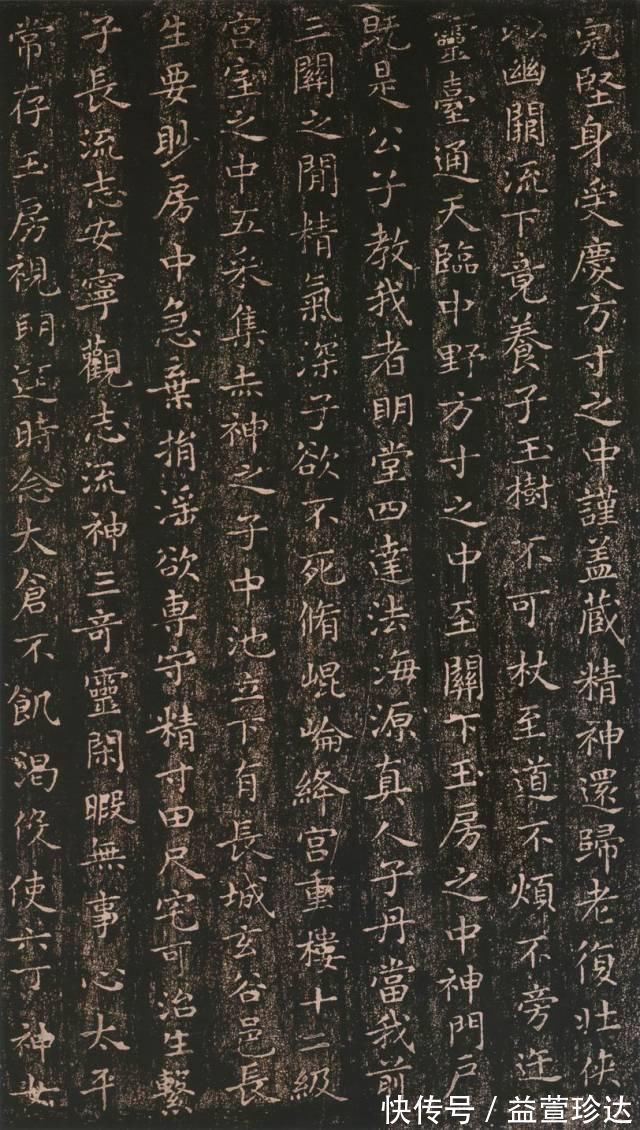 完堅身受慶方寸之中謹盖蔵精神還歸老復壮俠
以幽關流下竟養子玉樹不可杖至道不煩不旁迕
靈臺通天臨中野方寸之中至關下玉房之中神門戶
既是公子教我者明堂四達法海源真人子丹當我前
三關之間精氣深子欲不死脩崐崘絳宮重樓十二級
宮室之中五采集赤神之子中池立下有長城玄谷邑長
生要眇房中急棄捐淫欲専守精寸田尺宅可治生繫
子長流志安寧觀志流神三竒靈閑暇無事心太平
常存玉房視明逹時念大倉不飢渴役使六丁神女
快传号／益萱珍达